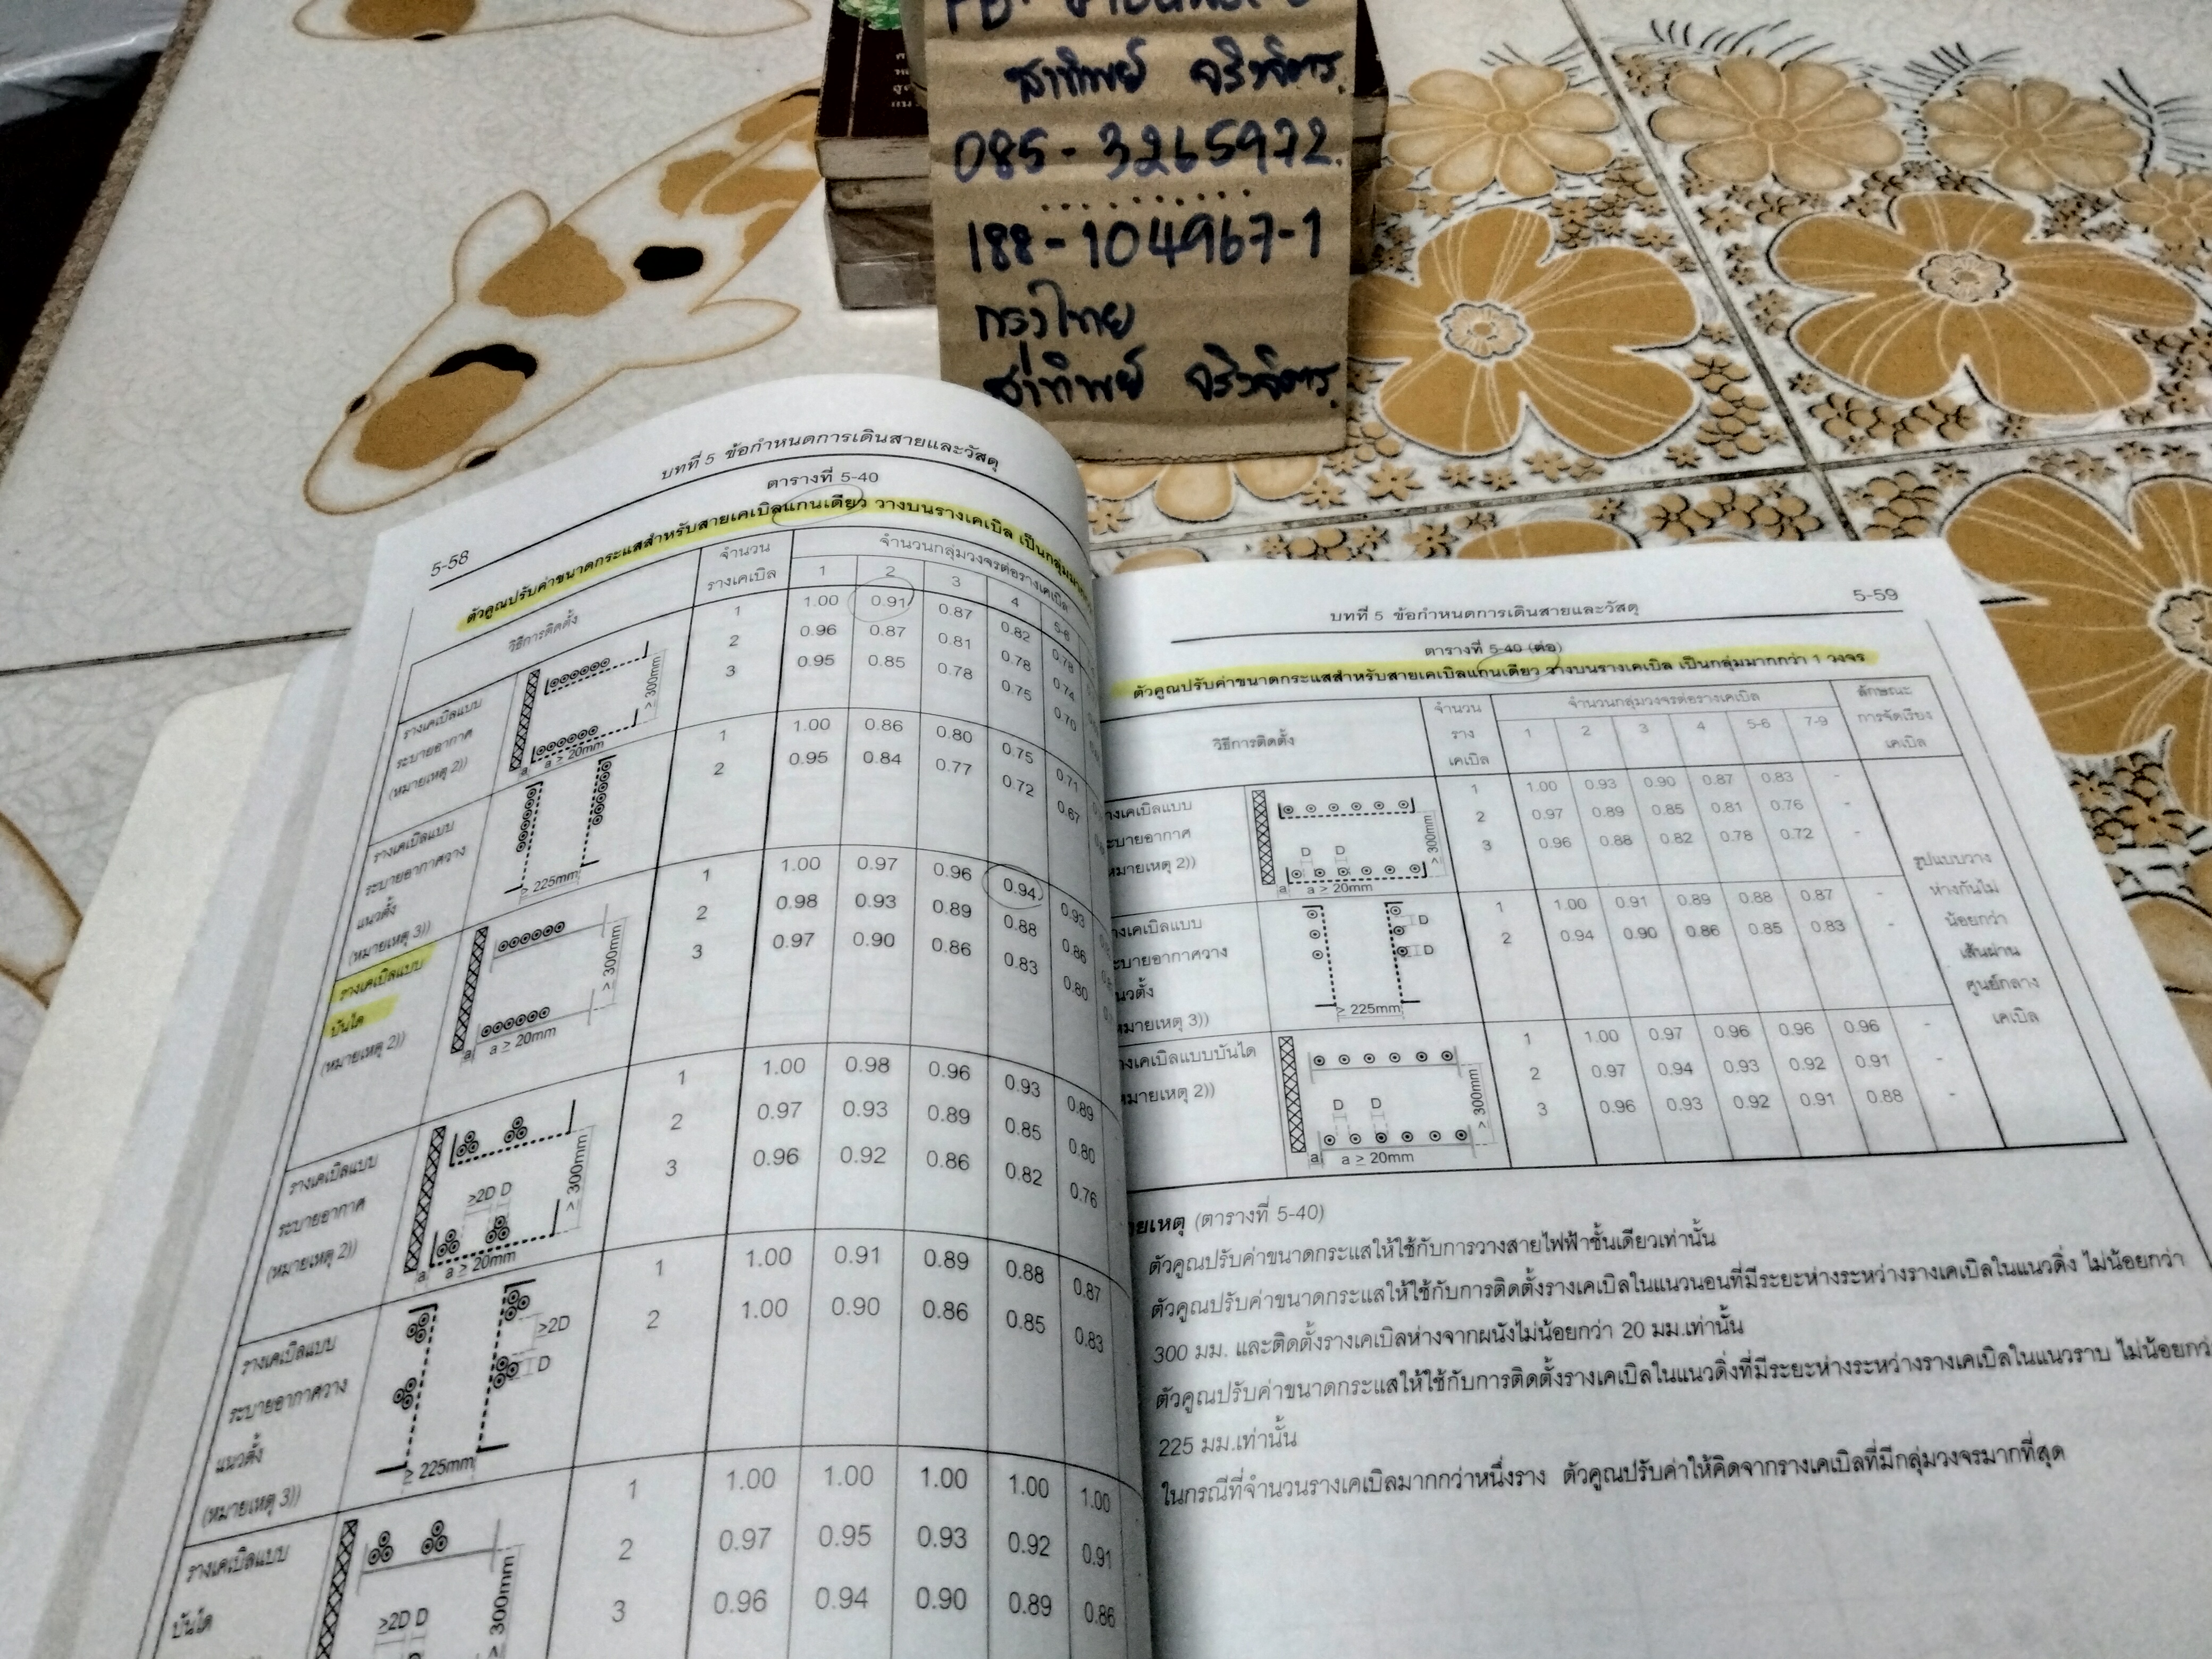 สาทิพย์ จริงจิตร.
085-3265972.
188-104967-1
กรุงไทย
สาทิพย์ จริงจิตร.
บทที่ 5 ข้อกำหนดการเดินสายและวัสดุ
5-58
ตารางที่ 5-40
ตัวคูณปรับค่าขนาดกระแสสำหรับสายเคเบิลแกนเดียว วางบนรางเคเบิล เป็นกลุ่ม
วิธีการติดตั้ง
จำนวน
รางเคเบิล
จำนวนกลุ่มวงจรต่อรางเคเบิล
1 2 3 4 5-6
รางเคเบิลแบบ
ระบายอากาศ
(หมายเหตุ 2))
> 300mm
a a ≥ 20mm
1 1.00 0.91 0.87 0.82 0.78
2 0.96 0.87 0.81 0.78 0.74
3 0.95 0.85 0.78 0.75 0.70
รางเคเบิลแบบ
ระบายอากาศวาง
แนวตั้ง
(หมายเหตุ 3))
≥ 225mm
1 1.00 0.86 0.80 0.75 0.71
2 0.95 0.84 0.77 0.72 0.67
รางเคเบิลแบบ
บันได
(หมายเหตุ 2))
> 300mm
a a ≥ 20mm
1 1.00 0.97 0.96 0.94 0.93
2 0.98 0.93 0.89 0.88 0.86
3 0.97 0.90 0.86 0.83 0.80
รางเคเบิลแบบ
ระบายอากาศ
(หมายเหตุ 2))
≥2D D
> 300mm
a a ≥ 20mm
1 1.00 0.98 0.96 0.93 0.89
2 0.97 0.93 0.89 0.85 0.80
3 0.96 0.92 0.86 0.82 0.76
รางเคเบิลแบบ
ระบายอากาศวาง
แนวตั้ง
(หมายเหตุ 3))
≥2D
D
≥ 225mm
1 1.00 0.91 0.89 0.88 0.87
2 1.00 0.90 0.86 0.85 0.83
รางเคเบิลแบบ
บันได
≥2D D
≥ 300mm
1 1.00 1.00 1.00 1.00 1.00
2 0.97 0.95 0.93 0.92 0.91
3 0.96 0.94 0.90 0.89 0.86
บทที่ 5 ข้อกำหนดการเดินสายและวัสดุ
5-59
ตารางที่ 5-40 (ต่อ)
ตัวคูณปรับค่าขนาดกระแสสำหรับสายเคเบิลแกนเดียว วางบนรางเคเบิล เป็นกลุ่มมากกว่า 1 วงจร
วิธีการติดตั้ง
จำนวน
ราง
เคเบิล
จำนวนกลุ่มวงจรต่อรางเคเบิล
1 2 3 4 5-6 7-9
ลักษณะ
การจัดเรียง
เคเบิล
างเคเบิลแบบ
ระบายอากาศ
หมายเหตุ 2))
D D
> 300mm
a a ≥ 20mm
1 1.00 0.93 0.90 0.87 0.83 -
2 0.97 0.89 0.85 0.81 0.76 -
3 0.96 0.88 0.82 0.78 0.72 -
รูปแบบวาง
ห่างกันไม่
น้อยกว่า
เส้นผ่าน
ศูนย์กลาง
เคเบิล
างเคเบิลแบบ
ระบายอากาศวาง
แนวตั้ง
หมายเหตุ 3))
D
D
≥ 225mm
1 1.00 0.91 0.89 0.88 0.87 -
2 0.94 0.90 0.86 0.85 0.83 -
างเคเบิลแบบบันได
หมายเหตุ 2))
D D
> 300mm
a a ≥ 20mm
1 1.00 0.97 0.96 0.96 0.96 -
2 0.97 0.94 0.93 0.92 0.91 -
3 0.96 0.93 0.92 0.91 0.88 -
ายเหตุ (ตารางที่ 5-40)
ตัวคูณปรับค่าขนาดกระแสให้ใช้กับการวางสายไฟฟ้าชั้นเดียวเท่านั้น
ตัวคูณปรับค่าขนาดกระแสให้ใช้กับการติดตั้งรางเคเบิลในแนวนอนที่มีระยะห่างระหว่างรางเคเบิลในแนวดิ่ง ไม่น้อยกว่า
300 มม. และติดตั้งรางเคเบิลห่างจากผนังไม่น้อยกว่า 20 มม.เท่านั้น
ตัวคูณปรับค่าขนาดกระแสให้ใช้กับการติดตั้งรางเคเบิลในแนวดิ่งที่มีระยะห่างระหว่างรางเคเบิลในแนวราบ ไม่น้อยกว่
225 มม.เท่านั้น
ในกรณีที่จำนวนรางเคเบิลมากกว่าหนึ่งราง ตัวคูณปรับค่าให้คิดจากรางเคเบิลที่มีกลุ่มวงจรมากที่สุด